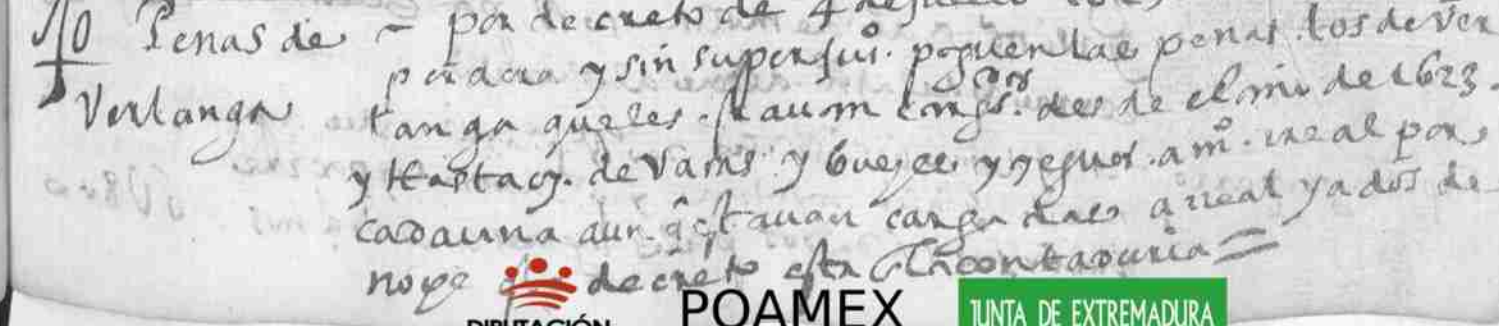 Penas de – por decreto de 4 de
perdera y sin superfui. paguen las penas los de Ver
Verlanga
langa que les estauan desde el año de 1623.
y Hasta oy. de Vacas y bueyes y yeguas. a mº. real por
cada una aun q̃ estauan cargadas a real y a dos de
noche decreto esta en la contaduria =
DIPUTACIÓN
POAMEX
JUNTA DE EXTREMADURA